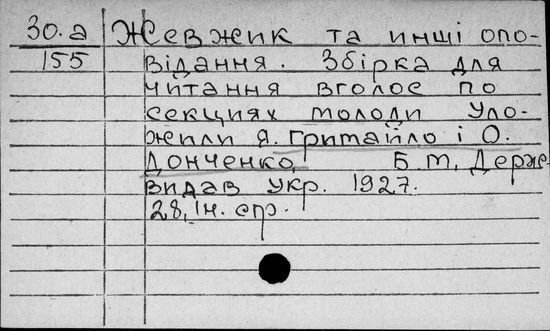 30.а Жевжик та инші опо-
155 відання. Збірка для
читання вголос по
секциях молоди Уло-
жили Я. Гримайло і О.
Донченко, Б.м, Держ
видав Укр. 1927.
28, Ін. стр.